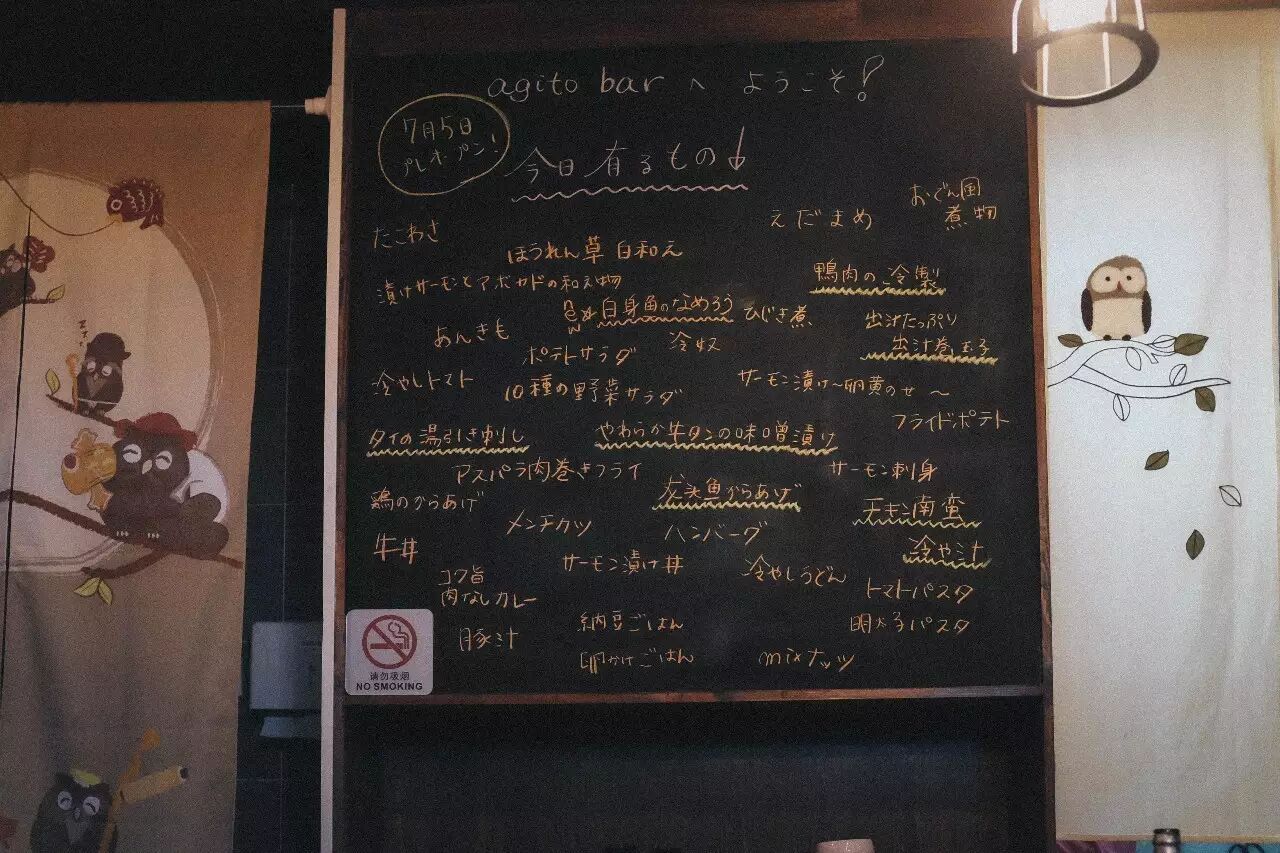 agito bar へ ようこそ!
7月5日
プレオープン!
今日 有るもの
おでん風
煮物
えだまめ
たこわさ
ほうれん草 白和え
漬けサーモンとアボカドの和え物
鴨肉の冷製
白身魚のなめろう
ひじき煮
出汁たっぷり
出汁巻玉子
あんきも
ポテトサラダ
冷奴
冷やしトマト
10種の野菜サラダ
サーモン漬け〜卵黄のせ〜
フライドポテト
タイの湯引き刺し
やわらか牛タンの味噌漬け
アスパラ肉巻きフライ
サーモン刺身
鶏のからあげ
魚からあげ
チキン南蛮
メンチカツ
ハンバーグ
牛丼
冷や汁
サーモン漬け丼
冷やしうどん
コク旨
肉なしカレー
トマトパスタ
豚汁
納豆ごはん
明太子パスタ
卵かけごはん
mixナッツ
请勿吸烟
NO SMOKING